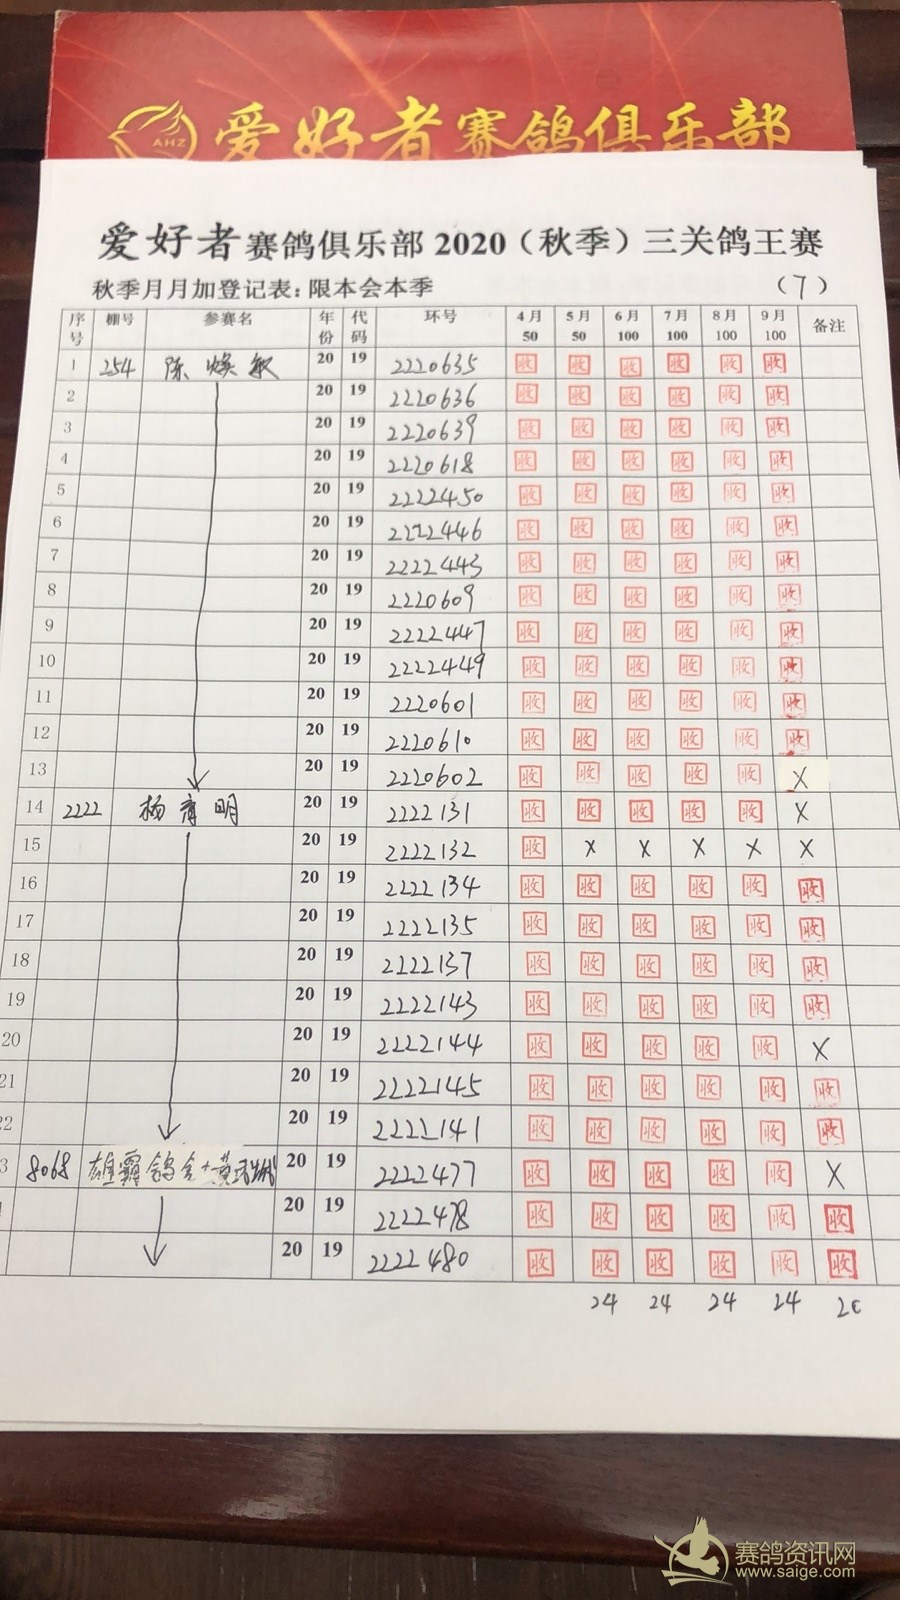 AHZ 爱好者赛鸽俱乐部
爱好者赛鸽俱乐部2020（秋季）三关鸽王赛
秋季月月加登记表：限本会本季 （7）
序号 棚号 参赛名 年份 代码 环号 4月50 5月50 6月100 7月100 8月100 9月100 备注
1 254 陈焕敏 20 19 2220635 收 收 收 收 收 收
2 20 19 2220636 收 收 收 收 收 收
3 20 19 2220639 收 收 收 收 收 收
4 20 19 2220618 收 收 收 收 收 收
5 20 19 2222450 收 收 收 收 收 收
6 20 19 2222446 收 收 收 收 收 收
7 20 19 2222443 收 收 收 收 收 收
8 20 19 2220609 收 收 收 收 收 收
9 20 19 2222447 收 收 收 收 收 收
10 20 19 2222449 收 收 收 收 收 收
11 20 19 2220601 收 收 收 收 收 收
12 20 19 2220610 收 收 收 收 收 收
13 20 19 2220602 收 收 收 收 收 X
14 2222 杨 明 20 19 2222131 收 收 收 收 收 X
15 20 19 2222132 收 X X X X X
16 20 19 2222134 收 收 收 收 收 收
17 20 19 2222135 收 收 收 收 收 收
18 20 19 2222137 收 收 收 收 收 收
19 20 19 2222143 收 收 收 收 收 收
20 20 19 2222144 收 收 收 收 收 X
21 20 19 2222145 收 收 收 收 收 收
22 20 19 2222141 收 收 收 收 收 收
3 8068 雄霸鸽舍+黄 20 19 2222477 收 收 收 收 收 X
20 19 2222478 收 收 收 收 收 收
20 19 2222480 收 收 收 收 收 收
24 24 24 24 20
赛鸽资讯网
www.saige.com